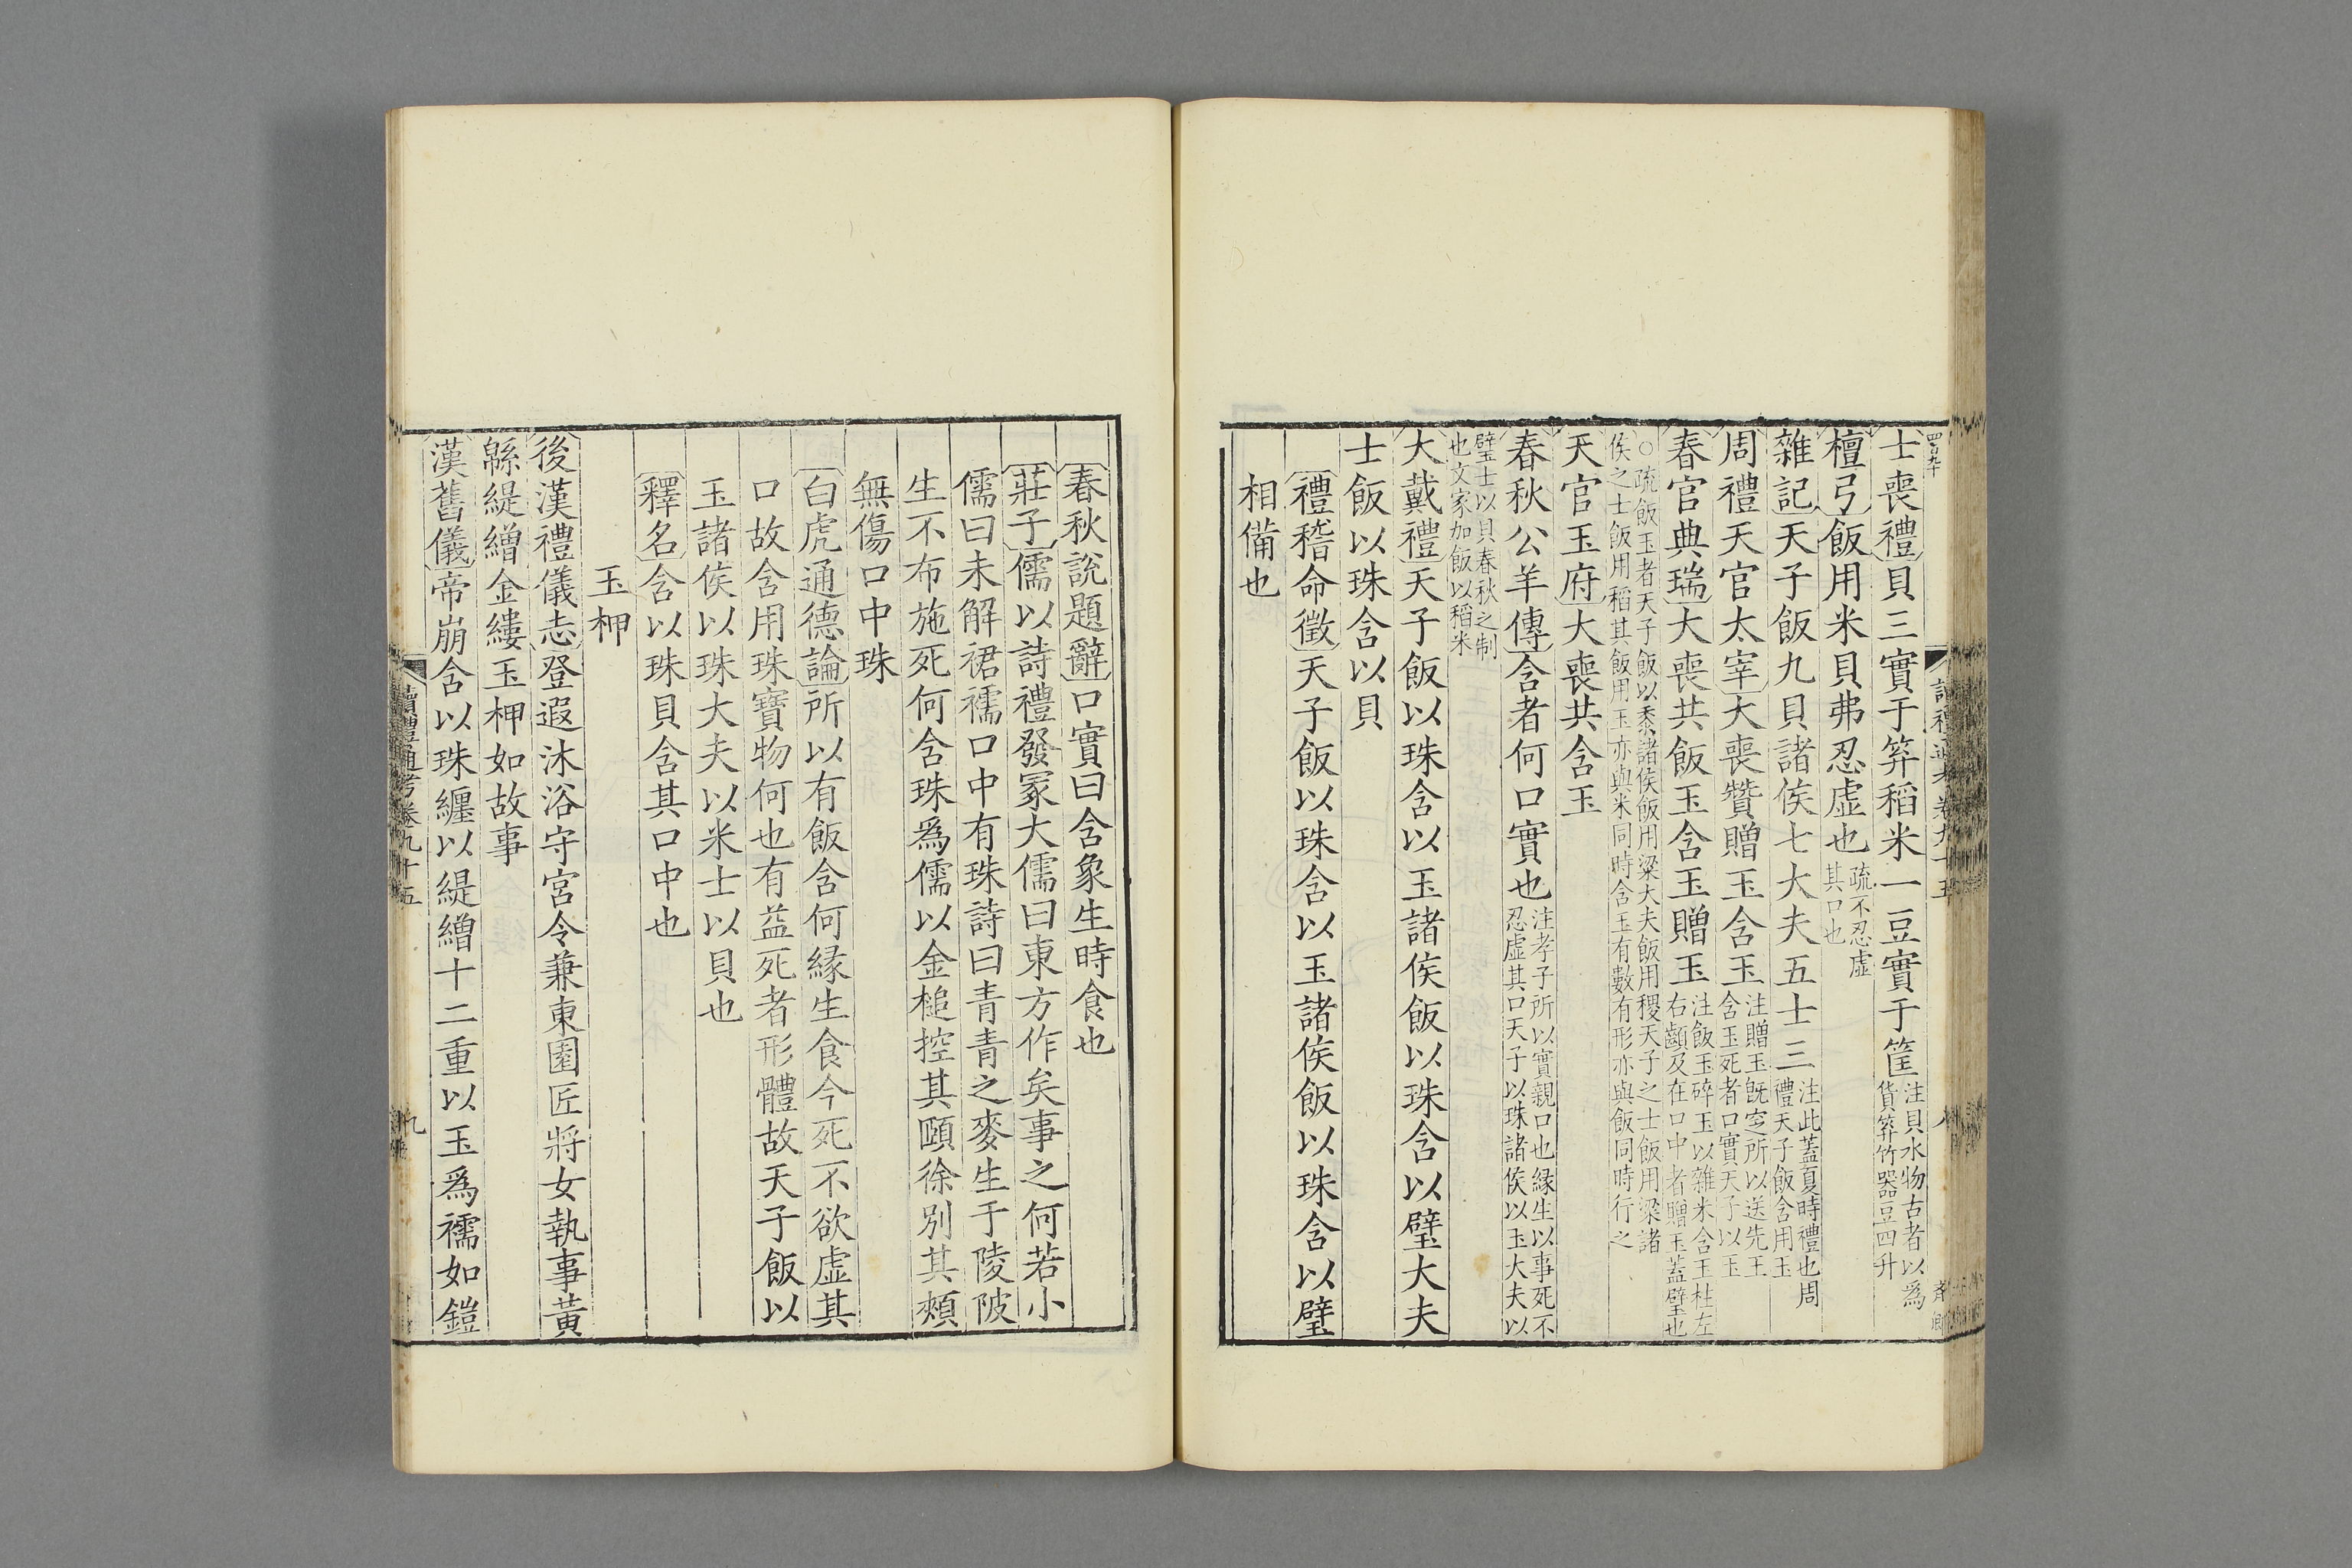 士喪禮貝三實于笲稻米一豆實于筐注貝水物古者以爲貨笲竹器豆四升
檀弓飯用米貝弗忍虛也疏不忍虛其口也
雜記天子飯九貝諸侯七大夫五士三注此蓋夏時禮也周禮天子飯含用玉
周禮天官太宰大喪贊贈玉含玉注贈玉旣窆所以送先王含玉死者口實天子以玉
春官典瑞大喪共飯玉含玉贈玉注飯玉碎玉以雜米含玉柱左右齻及在口中者贈玉蓋璧也
○疏飯玉者天子飯以黍諸侯飯用粱大夫飯用稷天子之士飯用粱諸侯之士飯用稻其飯用玉亦與米同時含玉有數有形亦與飯同時行之
天官玉府大喪共含玉
春秋公羊傳含者何口實也注孝子所以實親口也緣生以事死不忍虛其口天子以珠諸侯以玉大夫以
璧士以貝春秋之制也文家加飯以稻米
大戴禮天子飯以珠含以玉諸侯飯以珠含以璧大夫
士飯以珠含以貝
禮稽命徵天子飯以珠含以玉諸侯飯以珠含以璧
相備也
春秋說題辭口實曰含象生時食也
莊子儒以詩禮發冢大儒曰東方作矣事之何若小
儒曰未解裙襦口中有珠詩曰青青之麥生于陵陂
生不布施死何含珠爲儒以金槌控其頤徐別其頰
無傷口中珠
白虎通德論所以有飯含何緣生食今死不欲虛其
口故含用珠寶物何也有益死者形體故天子飯以
玉諸侯以珠大夫以米士以貝也
釋名含以珠貝含其口中也
玉柙
後漢禮儀志登遐沐浴守宮令兼東園匠將女執事黃
緜緹繒金縷玉柙如故事
漢舊儀帝崩含以珠纏以緹繒十二重以玉爲襦如鎧
讀禮通考卷九十五
九